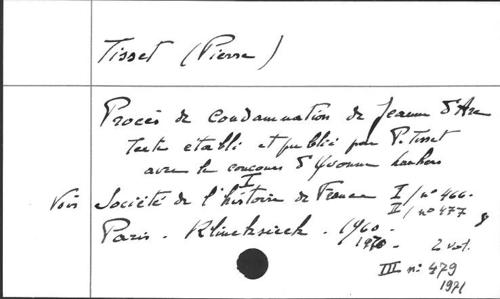 Tisset (Pierre)
Procès de condamnation de Jeanne d'Arc
Texte établi et publié par P. Tisset
avec le concours d'Yvonne Lanhers
I
Voir Société de l'histoire de France I / n° 466.
II / n° 477
Paris. Klincksieck. 1960.
1970. 2 vol.
III n° 479
1971